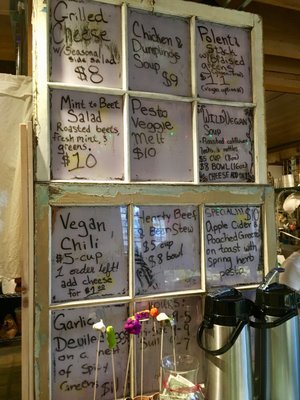 Grilled
Cheese
w/ Seasonal
side salad
$8
Chicken &
Dumplings
Soup
$9
Polenta
Stack
w/
greens
(vegan option)
Mint to Beet
Salad
Roasted beets,
fresh mint, &
greens.
$10
Pesto
Veggie
Melt
$10
WILD Vegan
Soup
Roasted cauliflower,
$5 cup
$8 BOWL
Vegan
Chili
$5-cup
1 order left!
add cheese
for $1.50
Hearty Beef
& Bean Stew
$5 cup
$8 bowl
SPECIAL $10
Apple Cider &
Poached Greens
on toast with
spring herb
pesto
Garlic
Deviled
on a
nest
of spicy
Greens